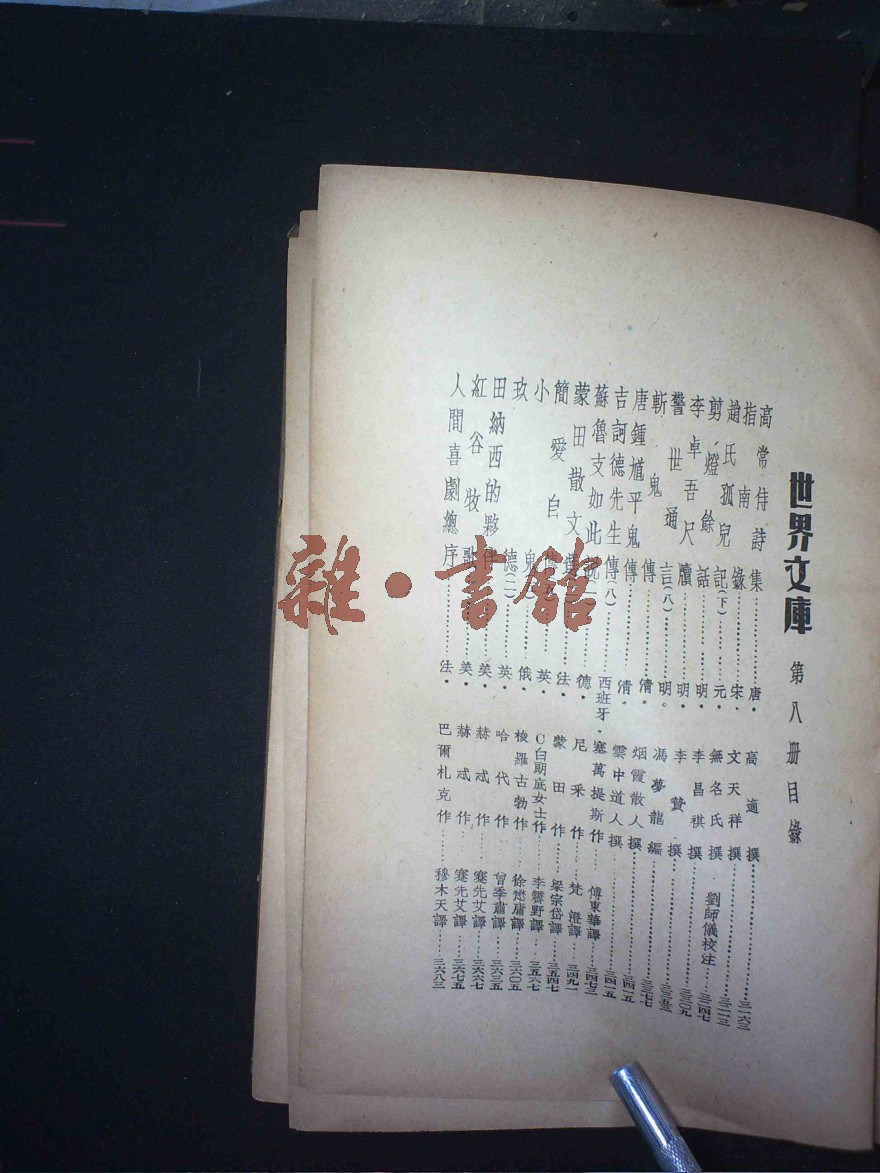 世界文庫 第八册目錄
高常侍詩集…………唐·高適撰…………三一六三
指南錄…………宋·文天祥撰…………三二一三
趙氏孤兒記(下)…………元·無名氏撰 劉師儀校註……三二四七
剪燈餘話…………明·李昌祺撰…………三三〇九
李卓吾尺牘…………明·李贄撰…………三三五三
警世通言(八)…………明。馮夢龍編…………三三七七
斬鬼傳…………清·烟霞散人撰…………三四一五
唐鍾馗平鬼傳…………清·雲中道人撰…………三四一五
吉訶德先生傳(八)…………西班牙·塞萬提斯作……傅東華譯……三四七三
蘇魯支如此說(一)…………德·尼采作……梵澄譯……三四九一
蒙田散文選…………法·蒙田作……梁宗岱譯……三五四七
簡愛自…………英·C白朗底女士作…李霽野譯……三五六七
小鬼…………俄·梭羅古勃作……徐懋庸譯……三六〇五
玖德(二)…………英·哈代作……曾季肅譯……三六三五
田納西的夥伴…………美·赫忒作……蹇先艾譯……三六六七
紅谷牧歌…………美·赫忒作……蹇先艾譯……三六七五
人間喜劇總序…………法·巴爾札克作……穆木天譯……三六八三
雜·書館